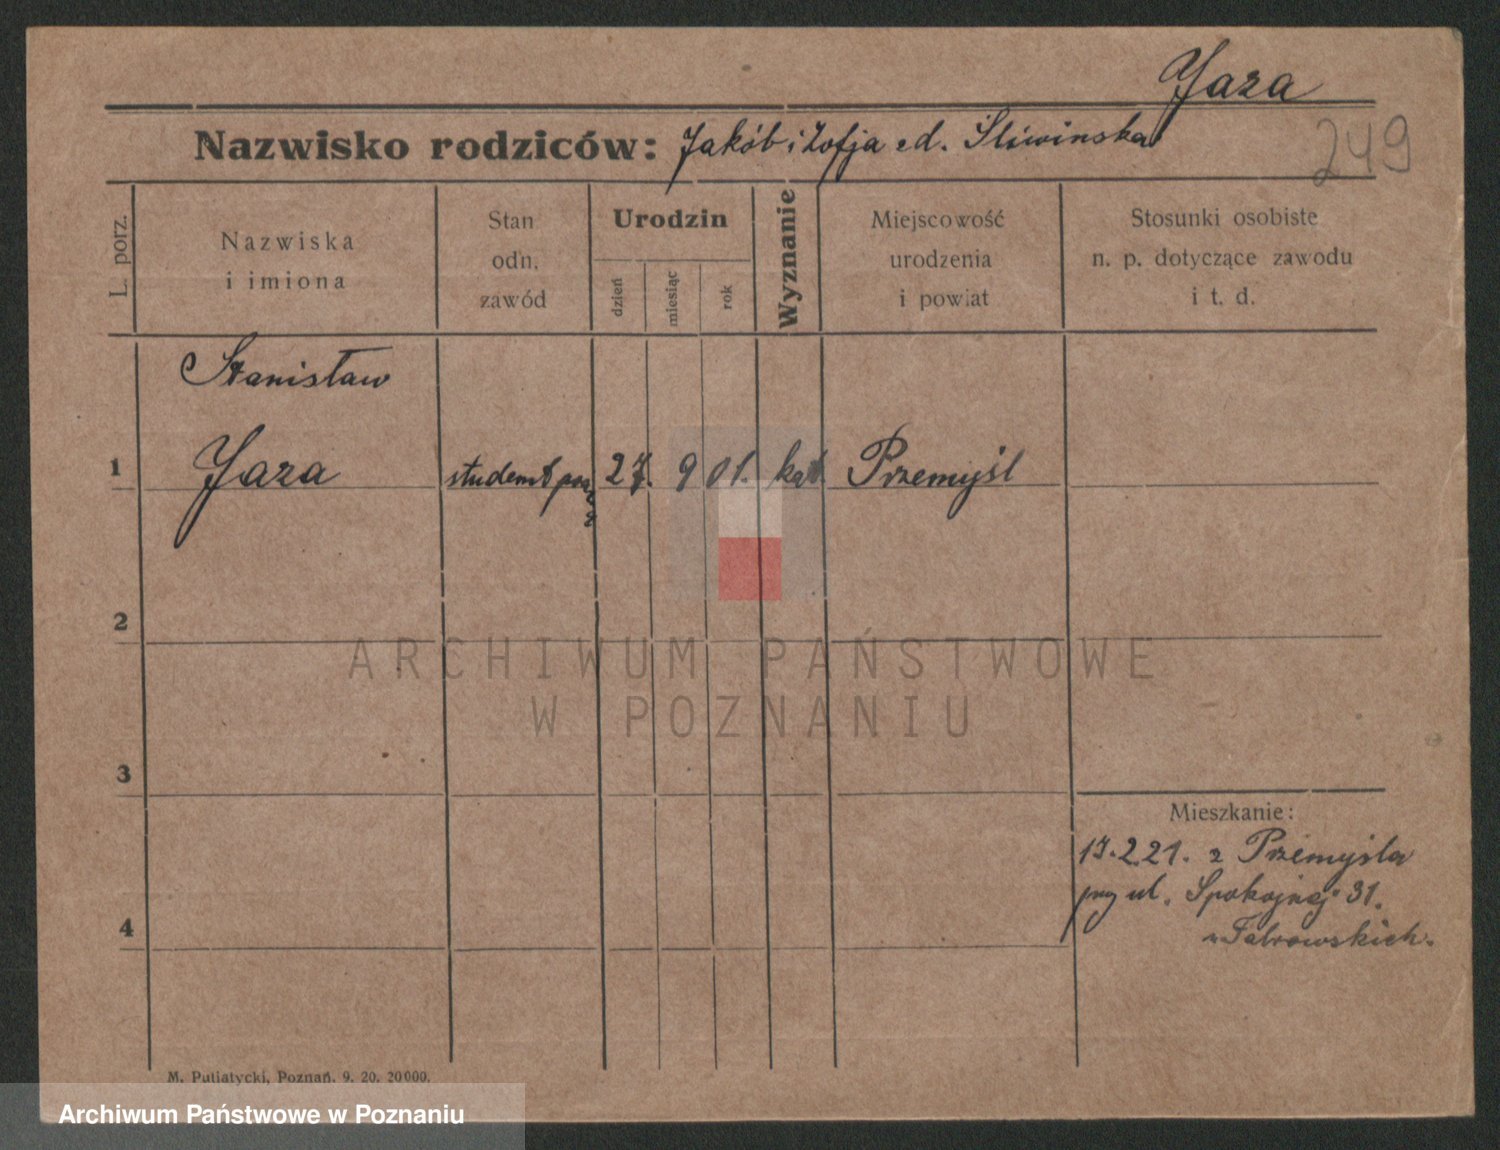 Jaza
Nazwisko rodziców: Jakób i Zofja zd. Śliwińska
249
L. porz.
Nazwiska
i imiona
Stan
odn.
zawód
Urodzin
dzień
miesiąc
rok
Wyznanie
Miejscowość
urodzenia
i powiat
Stosunki osobiste
n. p. dotyczące zawodu
i t. d.
Stanisław
1 Jaza student 27. 9 01. kat. Przemyśl
2
ARCHIWUM PAŃSTWOWE
W POZNANIU
3
Mieszkanie:
17.2.21. z Przemyśla
przy ul. Spokojnej 31.
4
M. Putiatycki, Poznań. 9. 20. 20000.
Archiwum Państwowe w Poznaniu